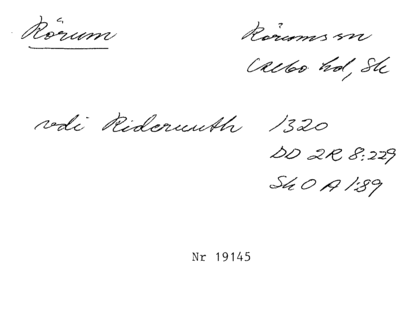 Rörum
Rörums sn
Albo hd, Sk
vdi Ridermuth 1320
DD 2R 8:229
SkO A 1:89
Nr 19145